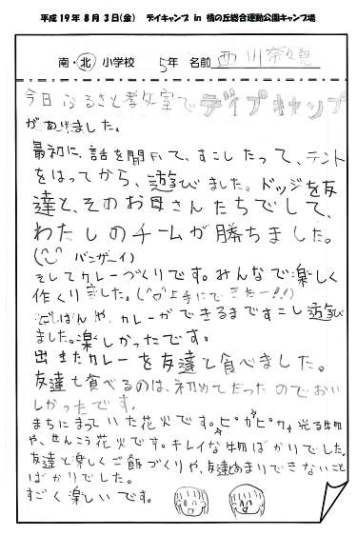 平成19年8月3日(金) デイキャンプ in 橋の丘総合運動公園キャンプ場
南・北 小学校 5年 名前 西川
今日ふるさと教室でデイプキャンプ
がありました。
最初に、話を聞いて、すこしたって、テント
をはってから、遊びました。ドッジを友
達と、そのお母さんたちでして、
わたしのチームが勝ちました。
(バンザーイ)
そしてカレーづくりです。みんなで楽しく
作くりました。(^o^上手にできたー!!)
ごはんや、カレーができるまですこし遊び
ました。楽しかったです。
出きたカレーを友達と食べました。
友達と食べるのは、初めてだったのでおい
しかったです。
まちにまっいた花火です。ピカピカ光る物
や、せんこう花火です。キレイな物ばかりでした。
友達と楽しくご飯づくりや、友達あまりできないこと
ばかりでした。
すごく楽しいです。